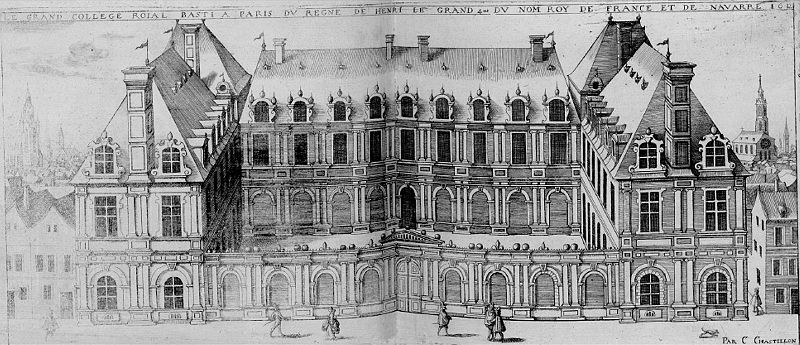 LE GRAND COLLEGE ROIAL BASTI A PARIS DV REGNE DE HENRI LE GRAND 4me DV NOM ROY DE FRANCE ET DE NAVARRE
PAR C CHASTILLON